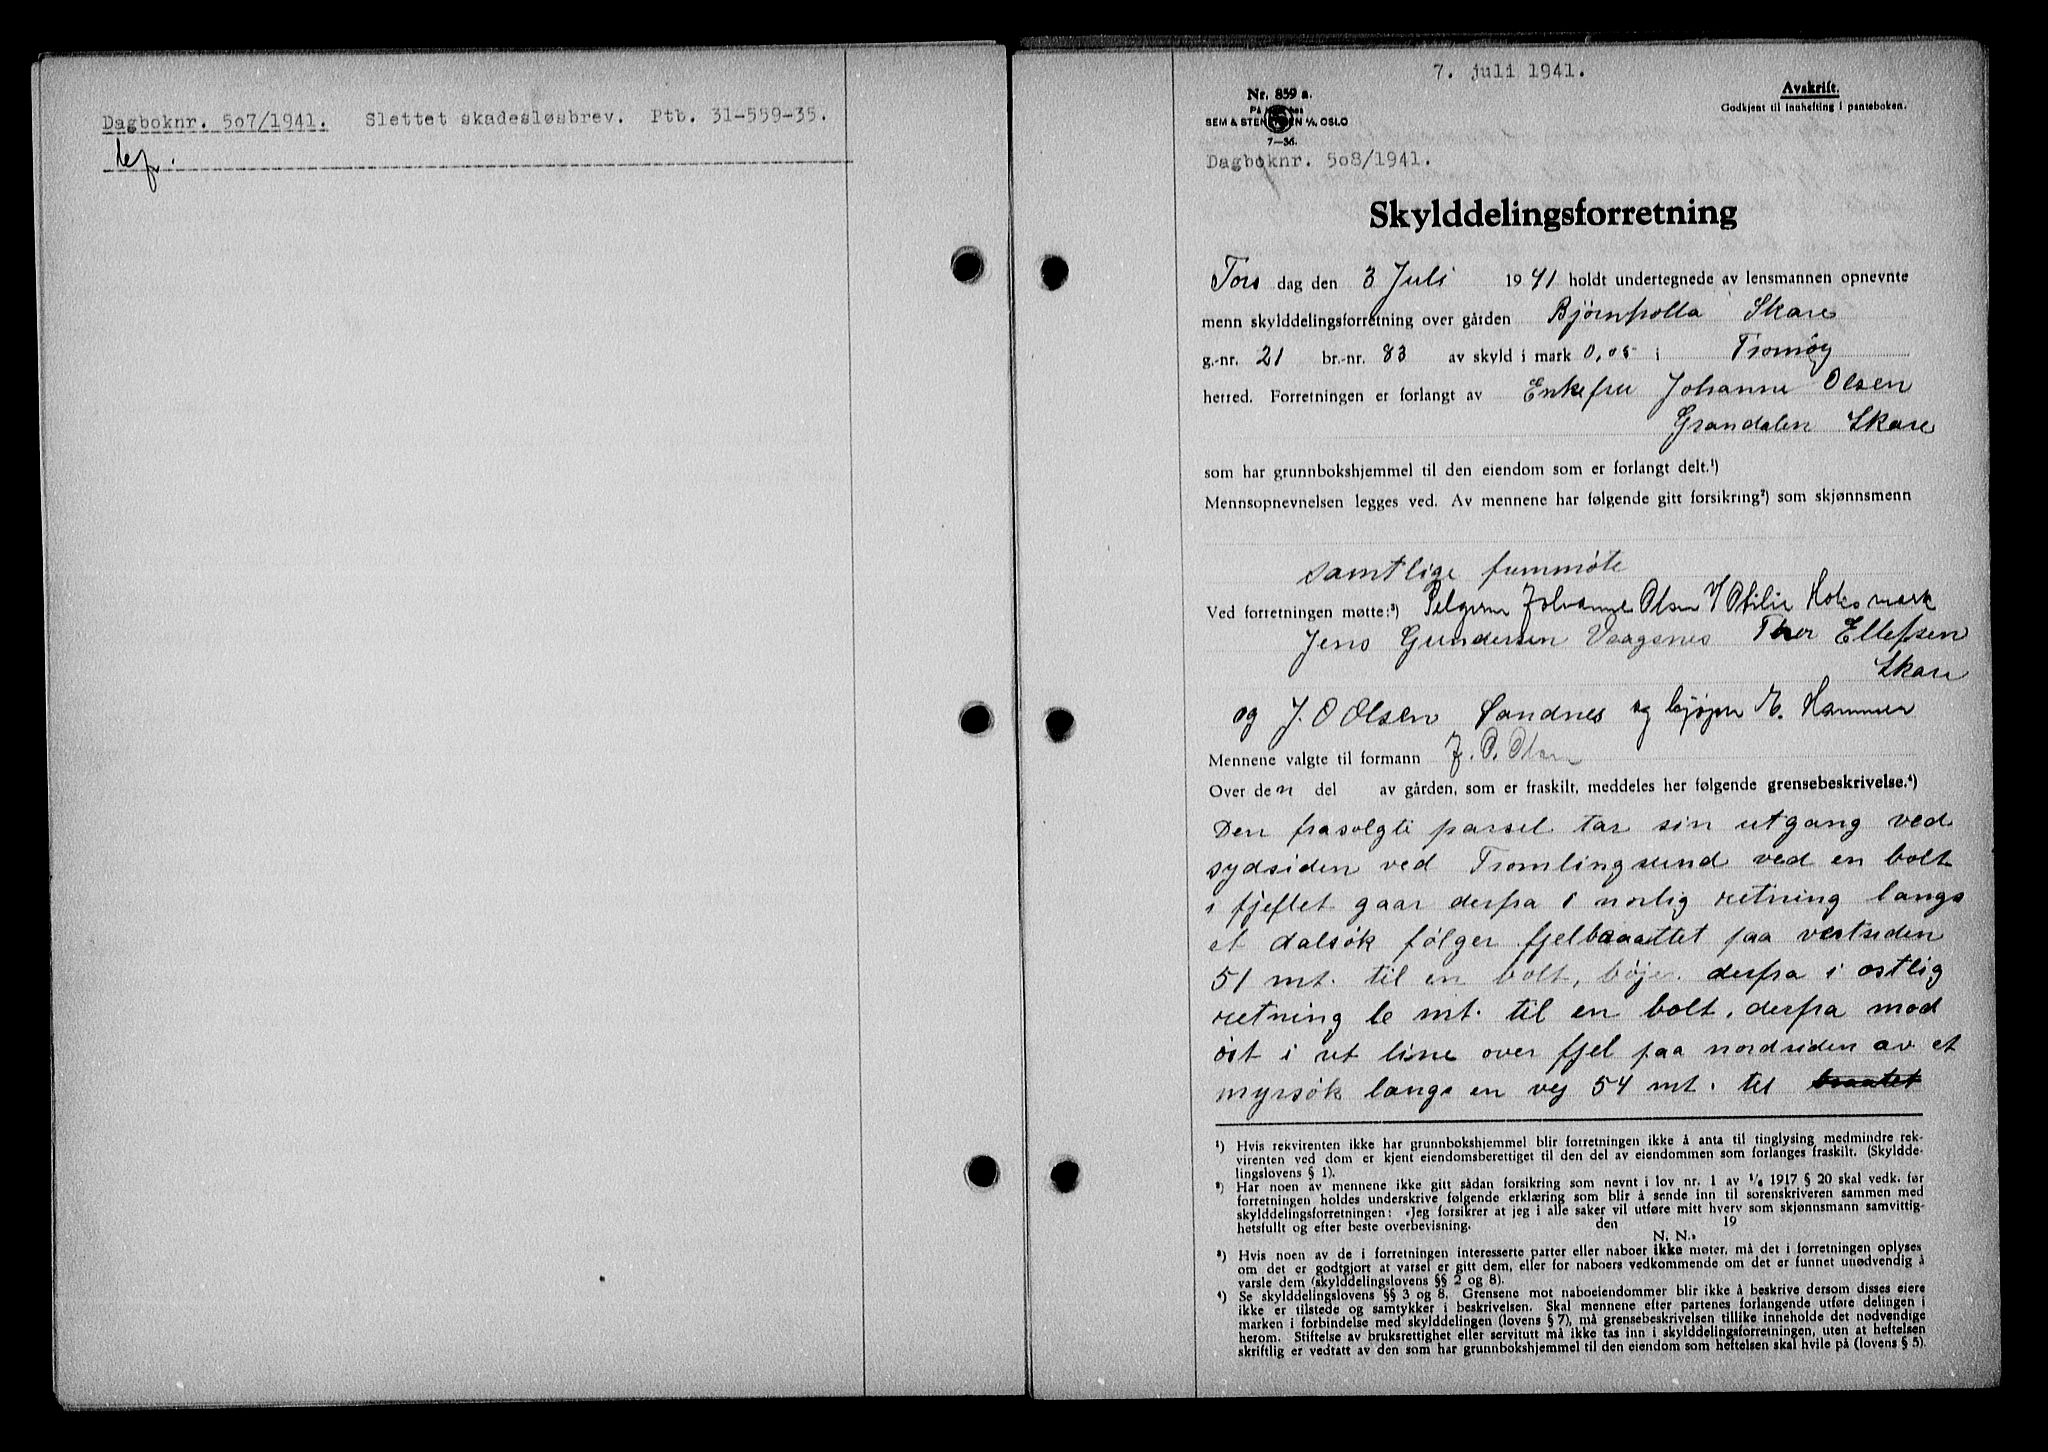 Dagboknr. 507/1941. Slettet skadesløsbrev. Ptb. 31-559-35.
7. juli 1941.
Nr. 859 a.
Avskrift.
Godkjent til innhefting i panteboken.
SEM & STENERSEN A/S, OSLO
7—36.
Dagboknr. 508/1941.
Skylddelingsforretning
Tors dag den 3 Juli 1941 holdt undertegnede av lensmannen opnevnte
menn skylddelingsforretning over gården Bjørnholla Skare
g.-nr. 21 br.-nr. 83 av skyld i mark 0,05 i Tromøy
herred. Forretningen er forlangt av Enkefru Johanne Olsen
Grandalen Skare
som har grunnbokshjemmel til den eiendom som er forlangt delt.¹)
Mennsopnevnelsen legges ved. Av mennene har følgende gitt forsikring²) som skjønnsmenn
samtlige fremmøte
Ved forretningen møtte:³) Selgeren Johanne Olsen Otilie Holsmark
Jens Gundersen Vaagsnes Thor Ellefsen
Skare
og J. O Olsen Sandnes og kjøper H. Hammer
Mennene valgte til formann J. O. Olsen
Over den del av gården, som er fraskilt, meddeles her følgende grensebeskrivelse.⁴)
Den frasolgte parsel tar sin utgang ved
sydsiden ved Tromlingsund ved en bolt
i fjellet gaar derfra i norlig retning langs
et dalsøk følger fjelbraattet paa vestsiden
51 mt. til en bolt, bøjer derfra i østlig
retning 6 mt. til en bolt, derfra mod
øst i ret line over fjel paa nordsiden av et
myrsøk langs en vej 54 mt. til braatet
¹) Hvis rekvirenten ikke har grunnbokshjemmel blir forretningen ikke å anta til tinglysing medmindre rek-
virenten ved dom er kjent eiendomsberettiget til den del av eiendommen som forlanges fraskilt. (Skyldde-
lingslovens § 1).
²) Har noen av mennene ikke gitt sådan forsikring som nevnt i lov nr. 1 av 1/6 1917 § 20 skal vedk. før
forretningen holdes underskrive følgende erklæring som blir å sende inn til sorenskriveren sammen med
skylddelingsforretningen: «Jeg forsikrer at jeg i alle saker vil utføre mitt hverv som skjønnsmann samvittig-
hetsfullt og efter beste overbevisning. den 19
N. N.»
³) Hvis noen av de i forretningen interesserte parter eller naboer ikke møter, må det i forretningen oplyses
om det er godtgjort at varsel er gitt dem, eller for naboers vedkommende om det er funnet unødvendig å
varsle dem (skylddelingslovens §§ 2 og 8).
⁴) Se skylddelingslovens §§ 3 og 8. Grensene mot naboeiendommer blir ikke å beskrive dersom disses eiere
ikke er tilstede og samtykker i beskrivelsen. Skal mennene efter partenes forlangende utføre delingen i
marken i forbindelse med skylddelingen (lovens § 7), må grensebeskrivelsen tillike inneholde det nødvendige
herom. Stiftelse av bruksrettighet eller servitutt må ikke tas inn i skylddelingsforretningen, uten at heftelsen
skriftlig er vedtatt av den som har grunnbokshjemmel til den eiendom som heftelsen skal hvile på (lovens § 5).